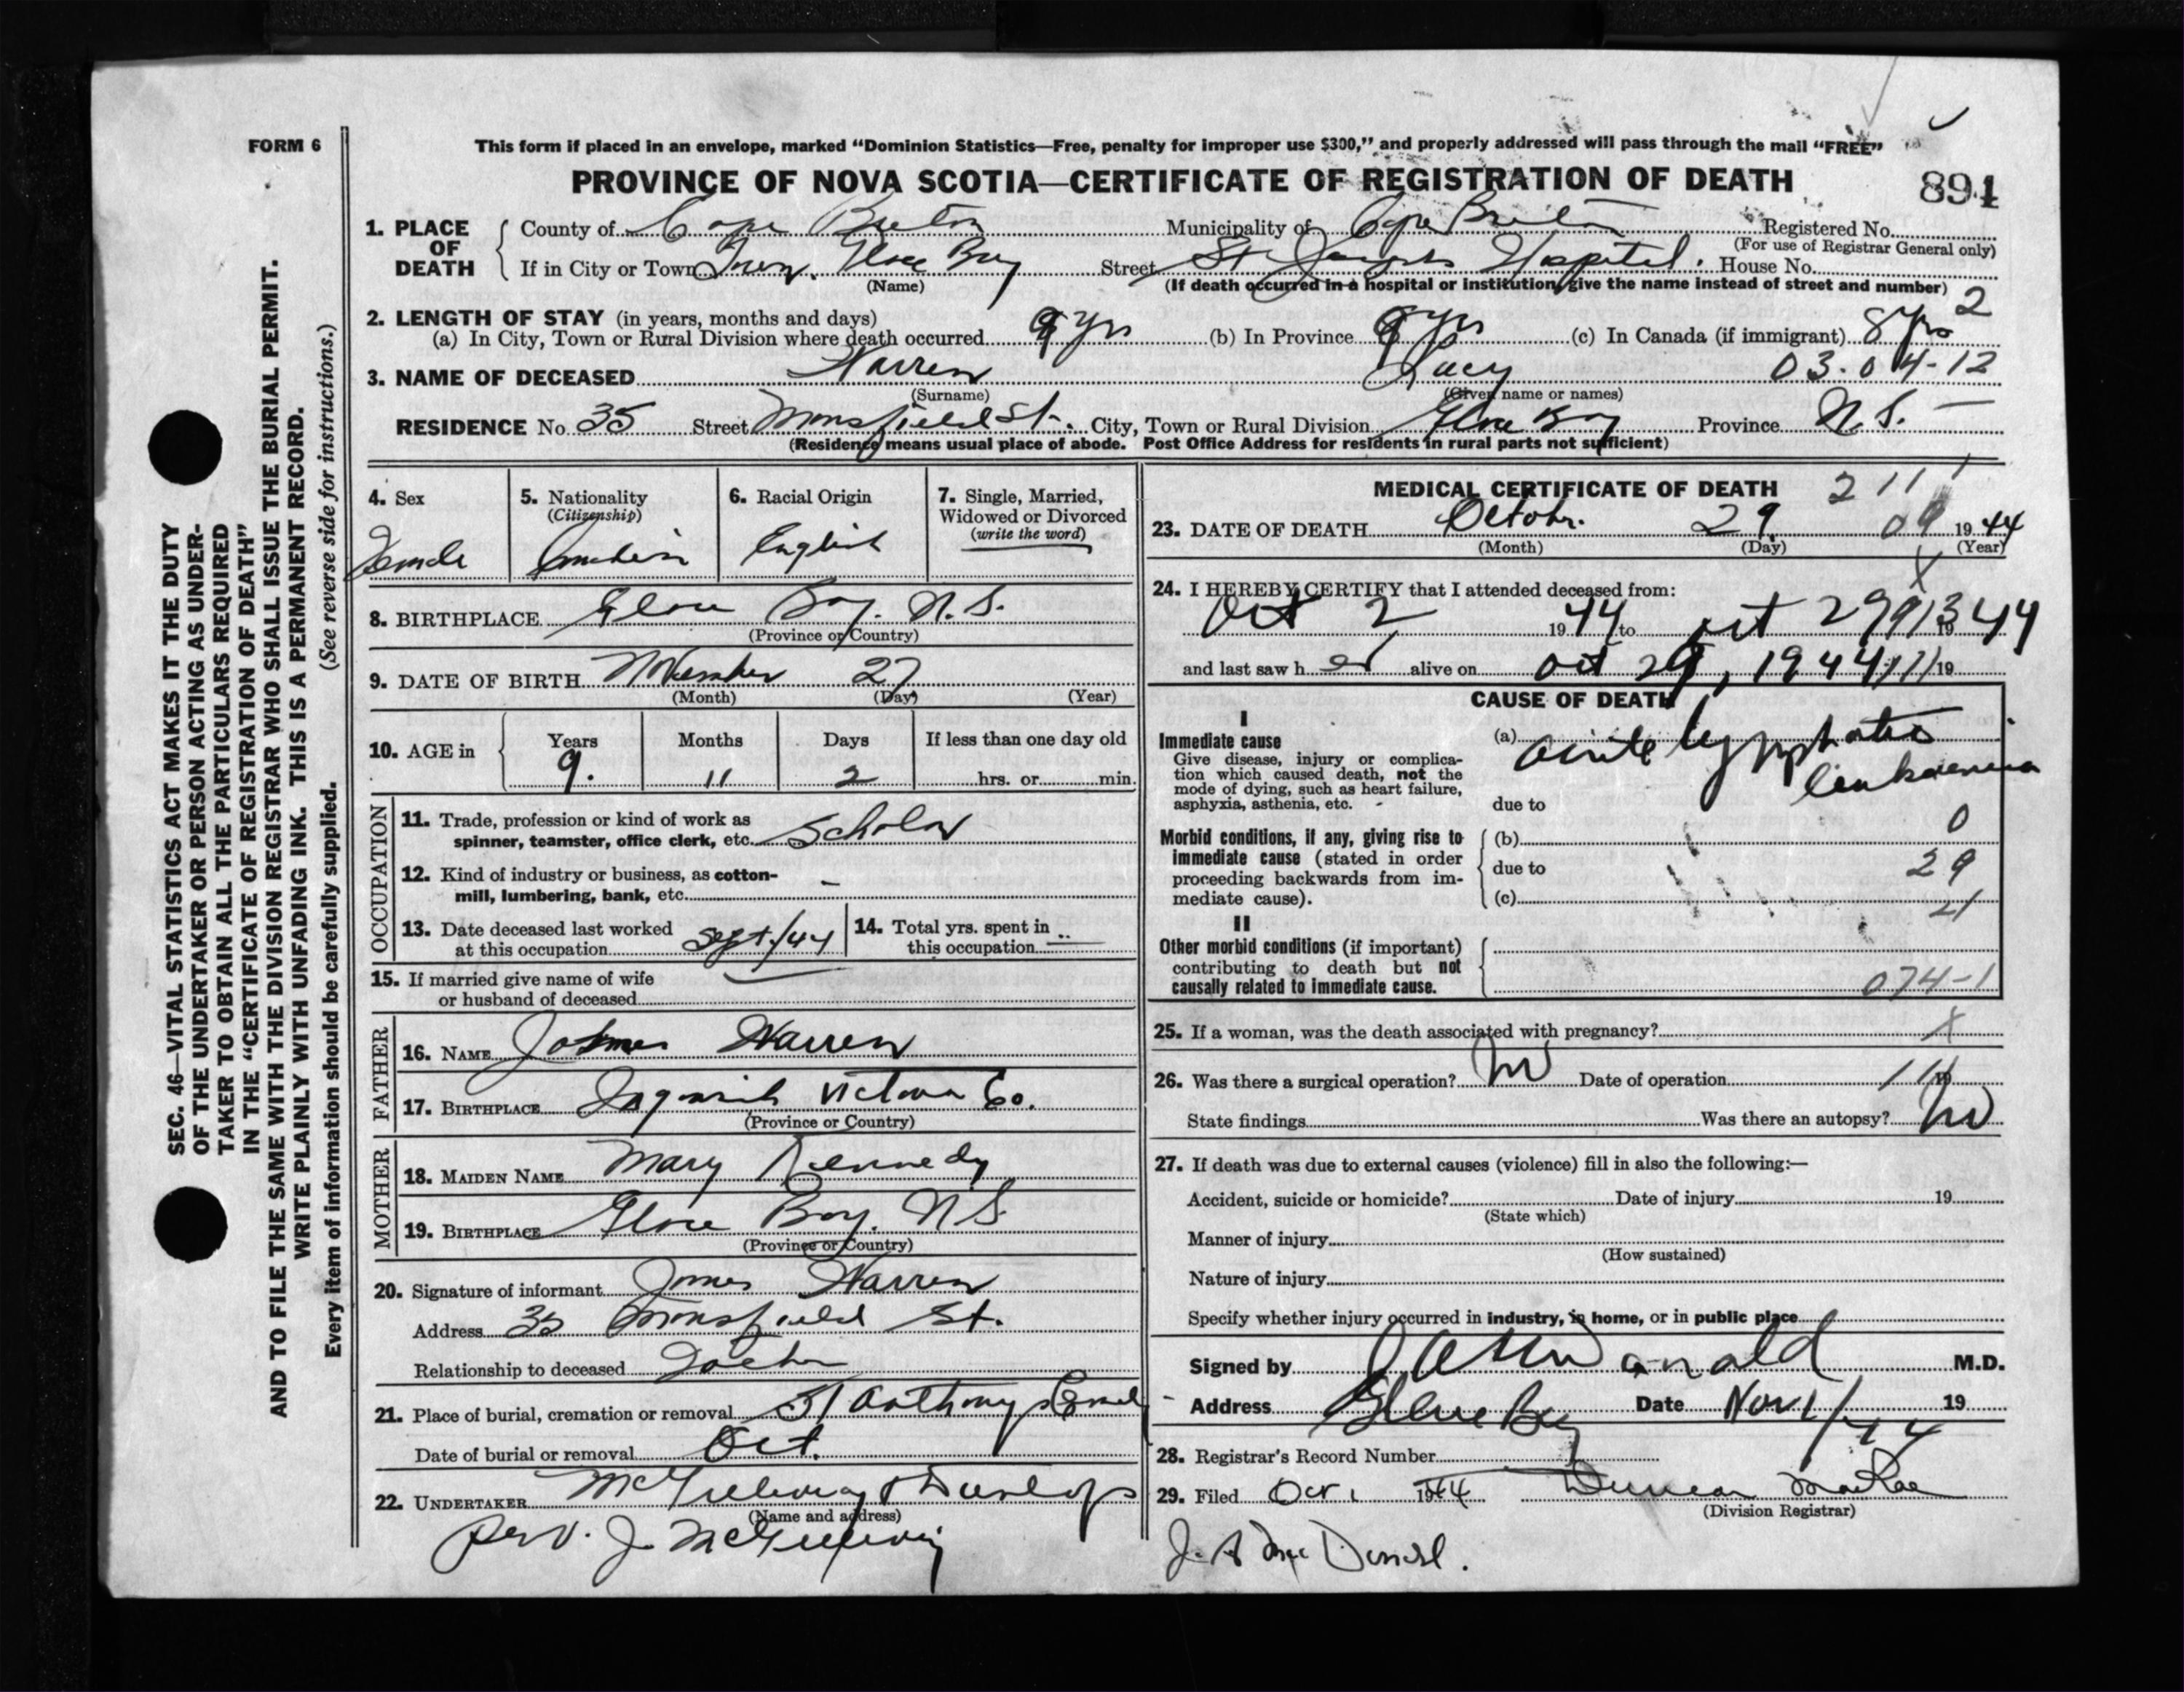 FORM 6
This form if placed in an envelope, marked "Dominion Statistics—Free, penalty for improper use $300," and properly addressed will pass through the mail "FREE"
PROVINCE OF NOVA SCOTIA—CERTIFICATE OF REGISTRATION OF DEATH
894
1. PLACE OF DEATH
County of Cape Breton Municipality of Cape Breton Registered No.
(For use of Registrar General only)
If in City or Town Town. Glace Bay Street St Josephs Hospital. House No.
(Name) (If death occurred in a hospital or institution, give the name instead of street and number)
2. LENGTH OF STAY (in years, months and days) 2
(a) In City, Town or Rural Division where death occurred 9 yrs (b) In Province 9 yrs (c) In Canada (if immigrant) 8 yrs
3. NAME OF DECEASED Warren Lucy 03.04-12
(Surname) (Given name or names)
RESIDENCE No. 35 Street Monsfield St. City, Town or Rural Division Glace Bay Province N.S. —
(Residence means usual place of abode. Post Office Address for residents in rural parts not sufficient)
4. Sex
Female
5. Nationality
(Citizenship)
Canadian
6. Racial Origin
English
7. Single, Married,
Widowed or Divorced
(write the word)
8. BIRTHPLACE Glace Bay. N.S.
(Province or Country)
9. DATE OF BIRTH November 27
(Month) (Day) (Year)
10. AGE in
Years Months Days If less than one day old
9. 11 2 hrs. or min.
OCCUPATION
11. Trade, profession or kind of work as
spinner, teamster, office clerk, etc. Scholar
12. Kind of industry or business, as cotton-
mill, lumbering, bank, etc. —
13. Date deceased last worked
at this occupation Sept./44
14. Total yrs. spent in
this occupation
15. If married give name of wife
or husband of deceased —
FATHER
16. NAME James Warren
17. BIRTHPLACE Ingonish Victoria Co.
(Province or Country)
MOTHER
18. MAIDEN NAME Mary Kennedy
19. BIRTHPLACE Glace Bay. N.S.
(Province or Country)
20. Signature of informant James Warren
Address 35 Monsfield St.
Relationship to deceased Father
21. Place of burial, cremation or removal St Anthony
Date of burial or removal Oct.
22. UNDERTAKER McGillivray & Dunlop
(Name and address)
Per V. J. McGillivray
MEDICAL CERTIFICATE OF DEATH 2 11 1
23. DATE OF DEATH October. 29 09 19 44
(Month) (Day) (Year)
X
24. I HEREBY CERTIFY that I attended deceased from:
Oct 2 19 44 to Oct 29 19 44
and last saw h er alive on Oct 29, 1944 19
CAUSE OF DEATH
I
Immediate cause
Give disease, injury or complica-
tion which caused death, not the
mode of dying, such as heart failure,
asphyxia, asthenia, etc.
(a) acute lymphatic
leukaemia
due to
Morbid conditions, if any, giving rise to
immediate cause (stated in order
proceeding backwards from im-
mediate cause).
(b) 0
due to 29
(c) 21
II
Other morbid conditions (if important)
contributing to death but not
causally related to immediate cause.
074-1
25. If a woman, was the death associated with pregnancy? X
26. Was there a surgical operation? No Date of operation 19
State findings Was there an autopsy? No
27. If death was due to external causes (violence) fill in also the following:—
Accident, suicide or homicide? Date of injury 19
(State which)
Manner of injury
(How sustained)
Nature of injury
Specify whether injury occurred in industry, in home, or in public place
Signed by J A McDonald M.D.
Address Glace Bay Date Nov 1/44 19
28. Registrar's Record Number
29. Filed Oct 1 1944 Duncan MacRae
(Division Registrar)
J. A McDonald.
SEC. 46—VITAL STATISTICS ACT MAKES IT THE DUTY
OF THE UNDERTAKER OR PERSON ACTING AS UNDER-
TAKER TO OBTAIN ALL THE PARTICULARS REQUIRED
IN THE "CERTIFICATE OF REGISTRATION OF DEATH"
AND TO FILE THE SAME WITH THE DIVISION REGISTRAR WHO SHALL ISSUE THE BURIAL PERMIT.
WRITE PLAINLY WITH UNFADING INK. THIS IS A PERMANENT RECORD.
Every item of information should be carefully supplied. (See reverse side for instructions.)